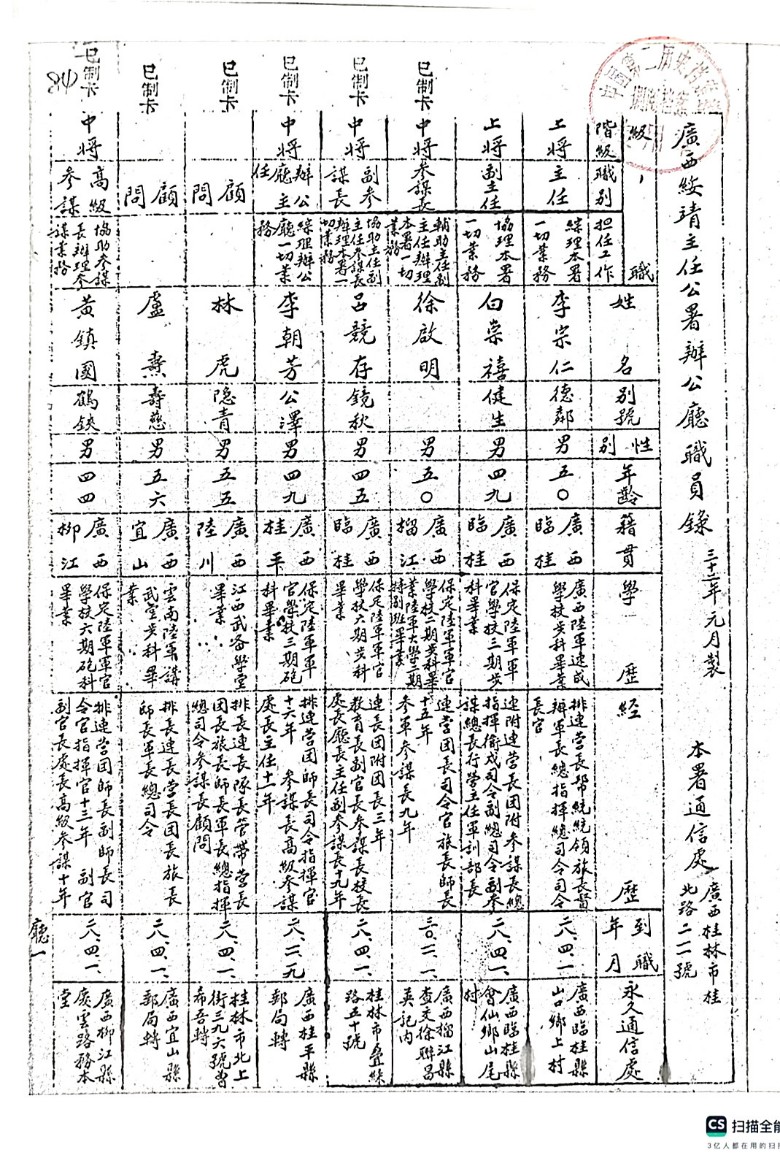 廣西綏靖主任公署辦公廳職員錄
三十二年元月製
本署通信處
廣西桂林市桂
北路二一一號
級職
階級
職別
担任工作
姓名
別號
性別
年齡
籍貫
學歷
經歷
到職年月
永久通信處
上將
主任
綜理本署
一切業務
李宗仁
德鄰
男
五〇
廣西
臨桂
廣西陸軍速成
學校步科畢業
排連營長帮統統領旅長督
辦軍長總指揮總司令司令
長官
二八、四、一、
廣西臨桂縣
山口鄉上村
上將
副主任
協理本署
一切業務
白崇禧
健生
男
四九
廣西
臨桂
保定陸軍軍
官學校三期步
科畢業
連附連營長團附參謀長總
指揮衛戍司令副總司令副參
謀總長行營主任軍訓部長
二八、四、一、
廣西臨桂縣
會仙鄉山尾
村
已制卡
中將
參謀長
輔助主任副
主任辦理
本署一切
業務
徐啟明
男
五〇
廣西
榴江
保定陸軍軍官
學校二期步科畢
業陸軍大學三期
特別班畢業
連營團長司令官旅長師長
十五年
參軍參謀長九年
三〇、二、一、
廣西榴江縣
查交徐聯昌
英記內
已制卡
中將
副參謀長
協助主任副
主任參謀長
辦理本署一
切業務
呂競存
鏡秋
男
四五
廣西
臨桂
保定陸軍軍官
學校六期步科
畢業
連長團附團長三年
教育長副官長參謀長校長
處長廳長主任副參謀長十九年
二八、四、一、
桂林市盐䋲
路五十號
已制卡
中將
辦公廳主任
綜理辦公
廳一切業
務
李朝芳
公澤
男
四九
廣西
桂平
保定陸軍軍
官學校三期砲
科畢業
排連營團師長司令指揮官
十六年 參謀長高級參謀
處長主任十一年
二八、二、九
廣西桂平縣
郵局轉
已制卡
顧問
林虎
隐青
男
五五
廣西
陸川
江西武备學堂
畢業
排長連長隊長管帶營長
團長旅長師長軍長總指揮
總司令參謀長顧問
二八、四、一、
桂林市北上
街三九六號曾
希吾轉
已制卡
顧問
盧燾
壽慈
男
五六
廣西
宜山
雲南陸軍講
武堂步科畢
業
排長連長營長團長旅長
師長軍長總司令
二八、四、一、
廣西宜山縣
郵局轉
已制卡
中將
高級參謀
協助參謀
長辦理參
謀業務
黃鎮國
鶴鋏
男
四四
廣西
柳江
保定陸軍軍官
學校六期砲科
畢業
排連營團師長副師長司
令官指揮官十三年 副官
副官長處長高級參謀十年
二八、四、一、
廣西柳江縣
慶雲路務本
堂
廳一
扫描全能
3亿人都在用的扫